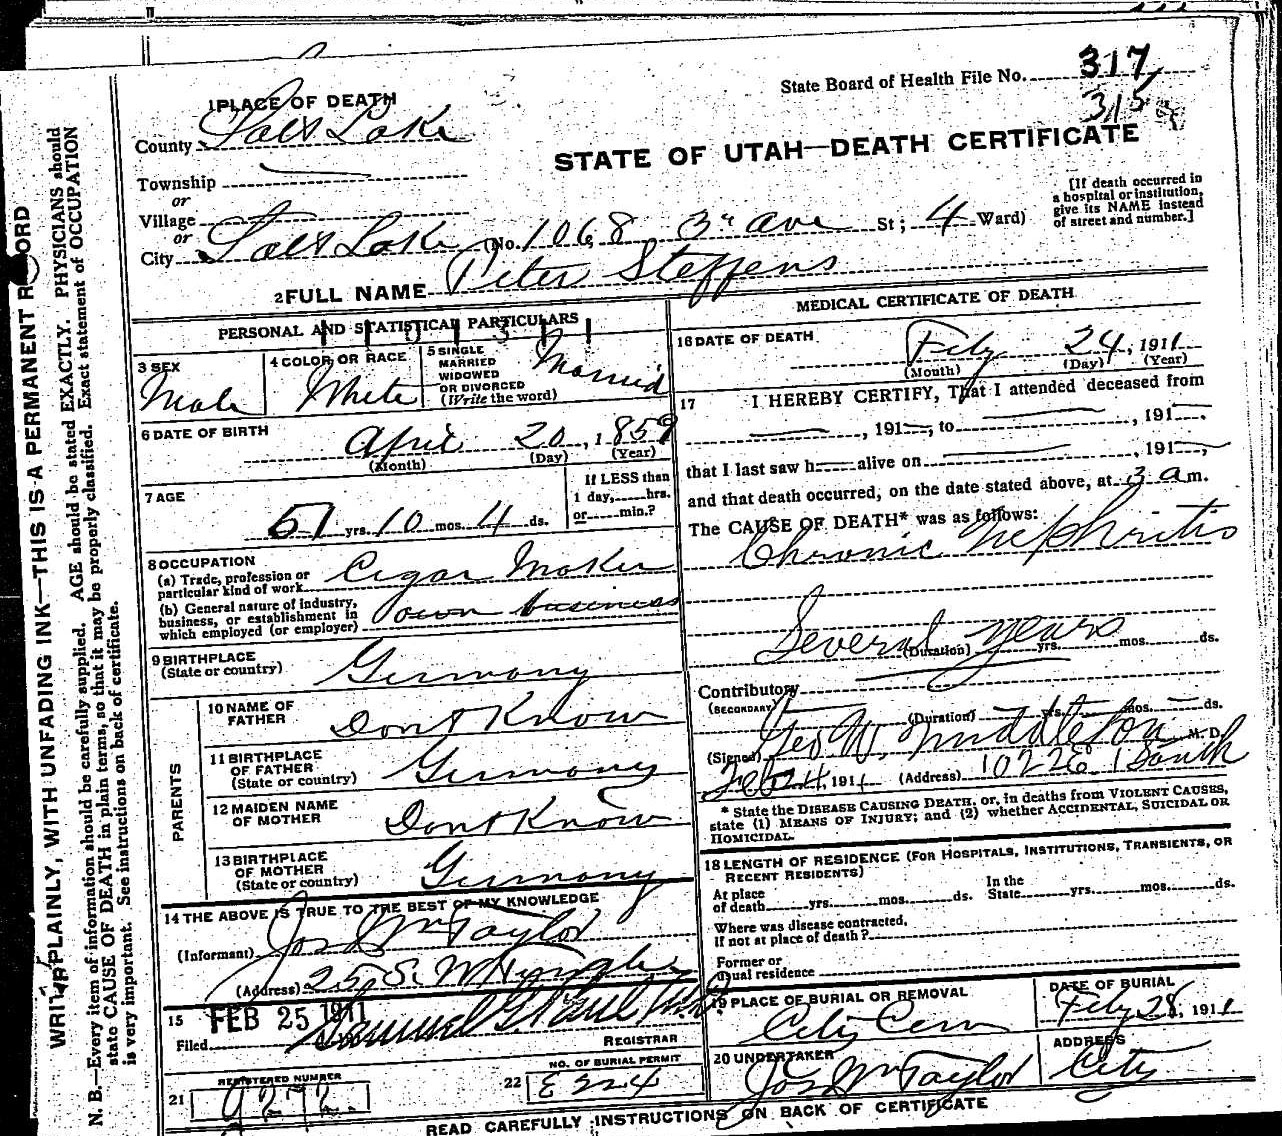 State Board of Health File No. 317
315
1 PLACE OF DEATH
County Salt Lake
STATE OF UTAH—DEATH CERTIFICATE
Township
or
Village
or
City Salt Lake (No. 1068 3r ave St; 4 Ward)
[If death occurred in a hospital or institution, give its NAME instead of street and number.]
2 FULL NAME Peter Steffens
PERSONAL AND STATISTICAL PARTICULARS
3 SEX
Male
4 COLOR OR RACE
White
5 SINGLE
MARRIED
WIDOWED
OR DIVORCED
(Write the word)
Married
6 DATE OF BIRTH
April 20, 1859
(Month) (Day) (Year)
7 AGE
51 yrs. 10 mos. 4 ds.
If LESS than
1 day,......hrs.
or......min.?
8 OCCUPATION
(a) Trade, profession or
particular kind of work Cigar Maker
(b) General nature of industry,
business, or establishment in
which employed (or employer) own business
9 BIRTHPLACE
(State or country) Germany
PARENTS
10 NAME OF
FATHER Dont Know
11 BIRTHPLACE
OF FATHER
(State or country) Germany
12 MAIDEN NAME
OF MOTHER Dont Know
13 BIRTHPLACE
OF MOTHER
(State or country) Germany
14 THE ABOVE IS TRUE TO THE BEST OF MY KNOWLEDGE
(Informant) Jos Wm Taylor
(Address) 25 S. W Temple
15
Filed FEB 25 1911 Samuel G. Paul
REGISTRAR
21 REGISTERED NUMBER
9272
22 NO. OF BURIAL PERMIT
E324
MEDICAL CERTIFICATE OF DEATH
16 DATE OF DEATH
Feby 24, 1911
(Month) (Day) (Year)
17 I HEREBY CERTIFY, That I attended deceased from
, 191 , to , 191 ,
that I last saw h alive on , 191 ,
and that death occurred, on the date stated above, at 3 a m.
The CAUSE OF DEATH* was as follows:
Chronic Nephritis
Several years
(Duration) yrs. mos. ds.
Contributory
(SECONDARY)
(Duration) yrs. mos. ds.
(Signed) Geo W. Middleton M. D.
Feb 24, 1911 (Address) 1022 E 1 South
* State the DISEASE CAUSING DEATH, or, in deaths from VIOLENT CAUSES,
state (1) MEANS OF INJURY; and (2) whether ACCIDENTAL, SUICIDAL OR
HOMICIDAL.
18 LENGTH OF RESIDENCE (FOR HOSPITALS, INSTITUTIONS, TRANSIENTS, OR
RECENT RESIDENTS)
At place
of death yrs. mos. ds.
In the
State yrs. mos. ds.
Where was disease contracted,
if not at place of death?
Former or
usual residence
19 PLACE OF BURIAL OR REMOVAL
City Cem
DATE OF BURIAL
Feby 28, 1911
20 UNDERTAKER
Jos Wm Taylor
ADDRESS
City
READ CAREFULLY INSTRUCTIONS ON BACK OF CERTIFICATE
WRITE PLAINLY, WITH UNFADING INK—THIS IS A PERMANENT RECORD
N. B.—Every item of information should be carefully supplied. AGE should be stated EXACTLY. PHYSICIANS should
state CAUSE OF DEATH in plain terms, so that it may be properly classified. Exact statement of OCCUPATION
is very important. See instructions on back of certificate.